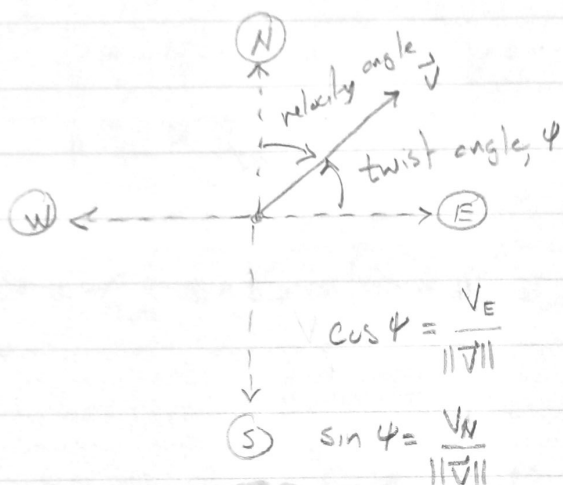 N
velocity angle
V⃗
twist angle, ψ
W
E
cos ψ = V_E / ||V⃗||
S
sin ψ = V_N / ||V⃗||